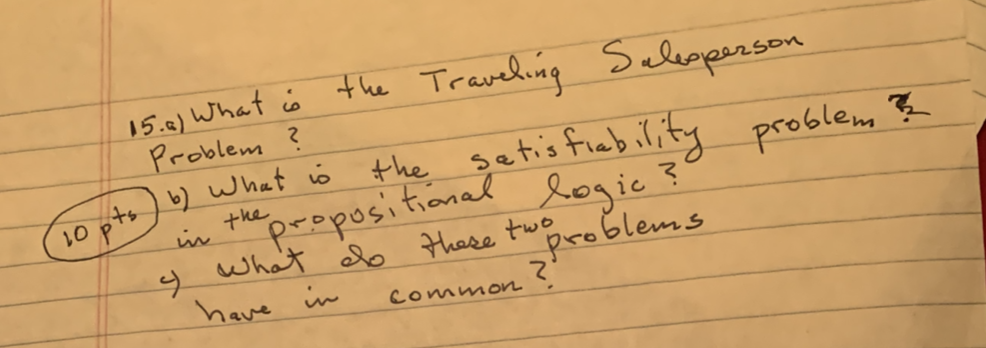 15.a) What is the Traveling Salesperson
Problem ?
10 pts
b) What is the satisfiability problem
in the propositional logic ?
c) What do these two problems
have in common ?